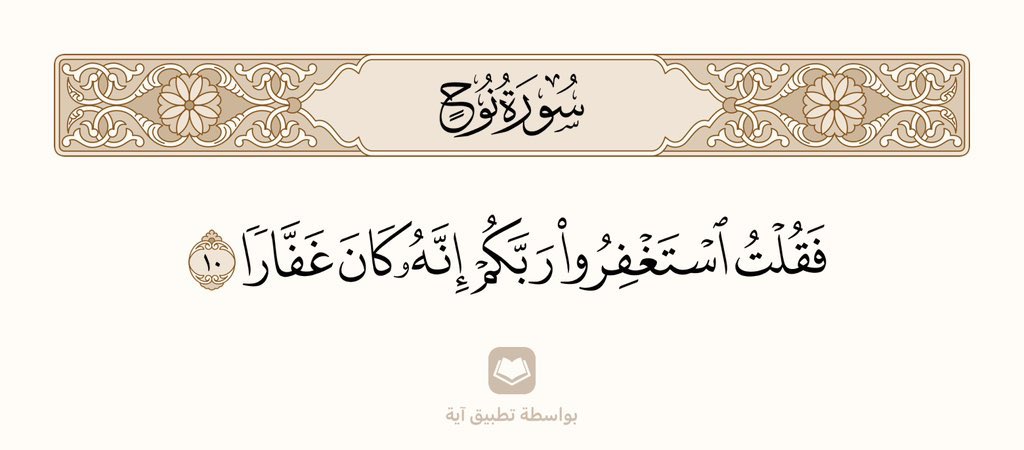 سُورَةُ نُوحٍ
فَقُلْتُ ٱسْتَغْفِرُوا۟ رَبَّكُمْ إِنَّهُۥ كَانَ غَفَّارًۭا ١٠
بواسطة تطبيق آية